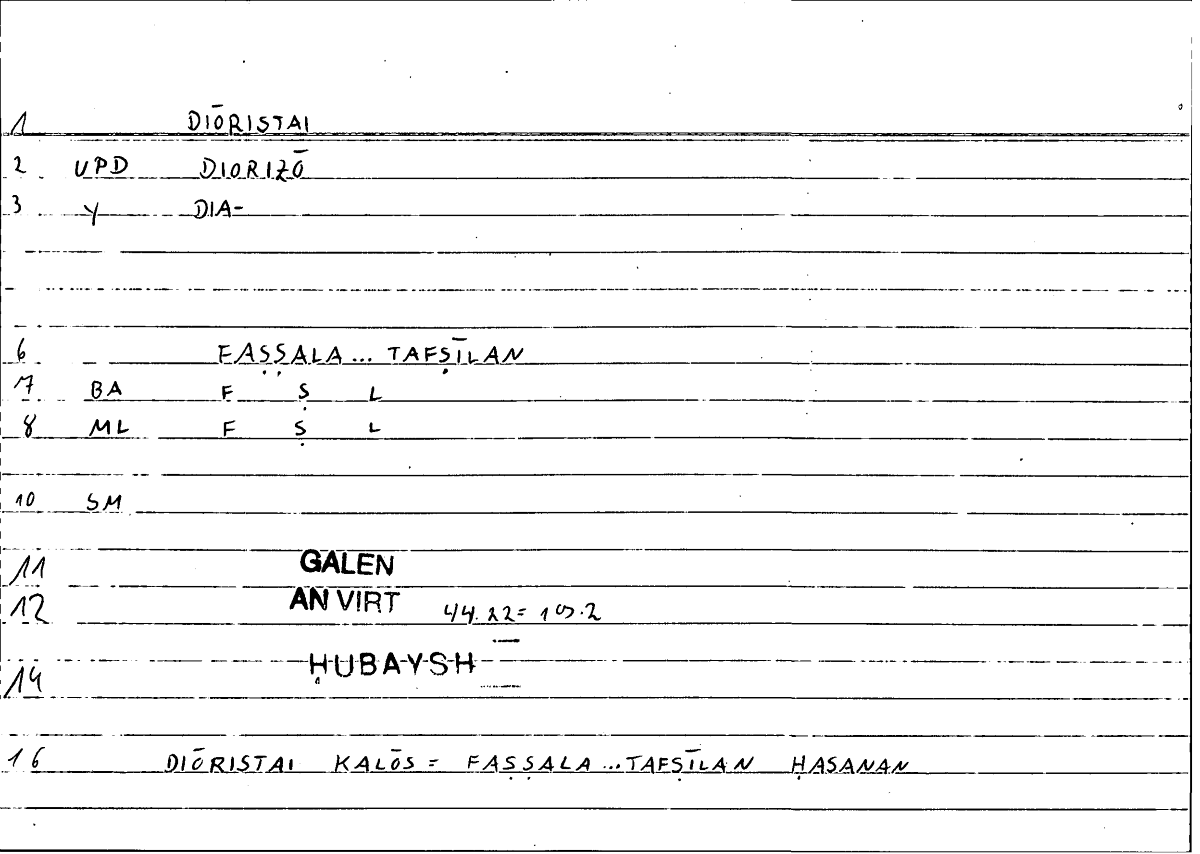 1 DIŌRISTAI
2 UPD DIORIZŌ
3 Y DIA-
6 FAṢṢALA... TAFṢĪLAN
7 BA F Ṣ L
8 ML F Ṣ L
10 SM
11 GALEN
12 AN VIRT 44.22=
14 ḤUBAYSH
16 DIŌRISTAI KALŌS = FAṢṢALA...TAFṢĪLAN ḤASANAN